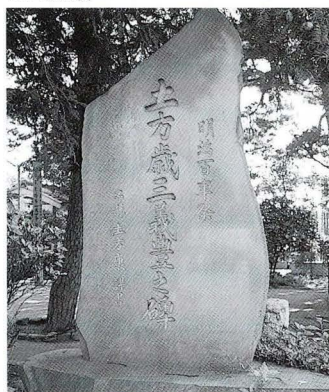 明治百年祭
土方歳三義豊之碑
土方